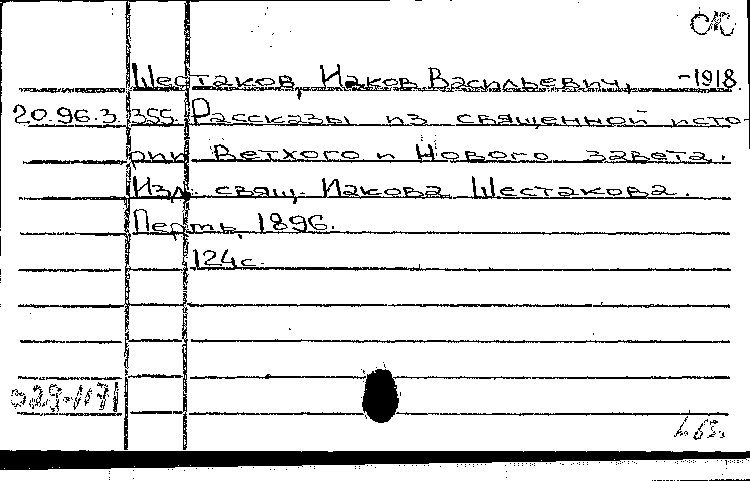 СК
Шестаков, Иаков Васильевич, -1918.
20.96.3.355. Рассказы из священной исто-
рии Ветхого и Нового завета.
Изд. свящ. Иакова Шестакова.
Пермь, 1896.
124с.
029-1171